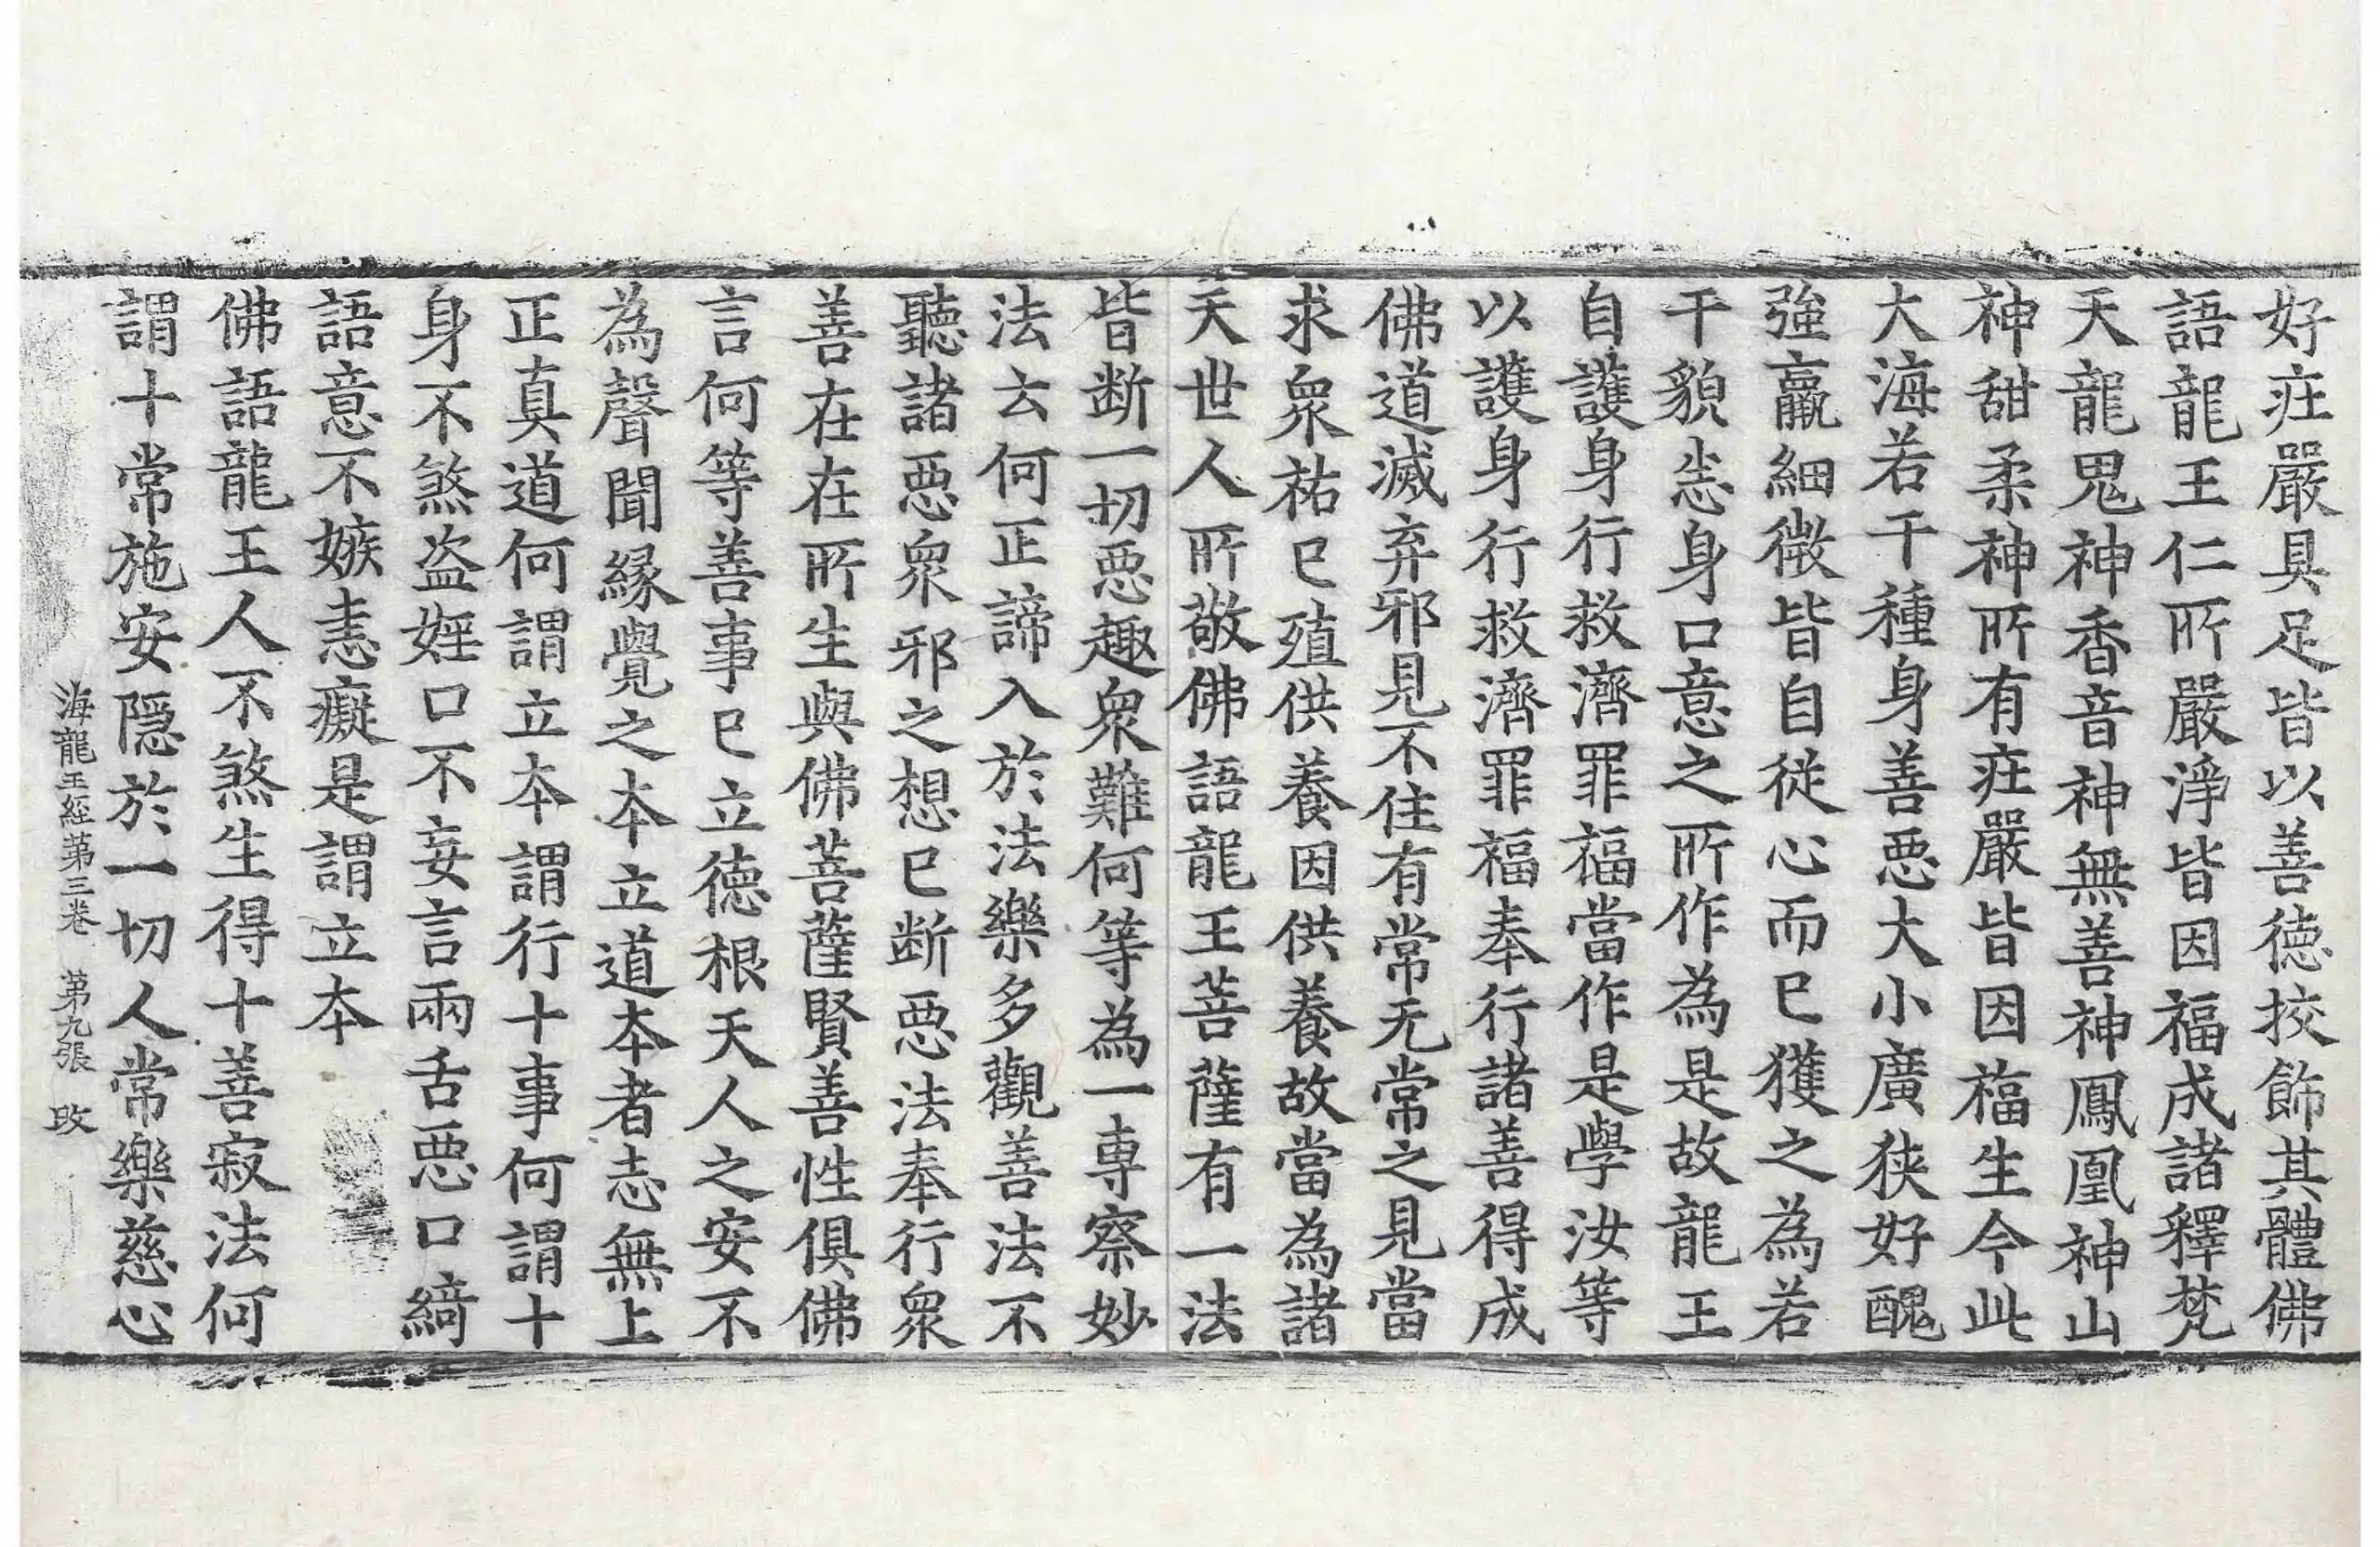 好㽵嚴具足皆以善德挍飾其體佛
語龍王仁所嚴淨皆因福成諸釋梵
天龍鬼神香音神無善神鳳凰神山
神甜柔神所有㽵嚴皆因福生今此
大海若干種身善惡大小廣狹好醜
強羸細微皆自從心而已獲之為若
干貌志身口意之所作為是故龍王
自護身行救濟罪福當作是學汝等
以護身行救濟罪福奉行諸善得成
佛道滅弃邪見不住有常无常之見當
求衆祐已殖供養因供養故當為諸
天世人所敬佛語龍王菩薩有一法
皆断一切惡趣衆難何等為一專察妙
法云何正諦入於法樂多觀善法不
聽諸惡衆邪之想已断惡法奉行衆
善在在所生與佛菩薩賢善性俱佛
言何等善事已立德根天人之安不
為聲聞緣覺之本立道本者志無上
正真道何謂立本謂行十事何謂十
身不煞盗婬口不妄言兩舌惡口綺
語意不嫉恚癡是謂立本
佛語龍王人不煞生得十善寂法何
謂十常施安隱於一切人常樂慈心
海龍王經第三卷 第九張 改